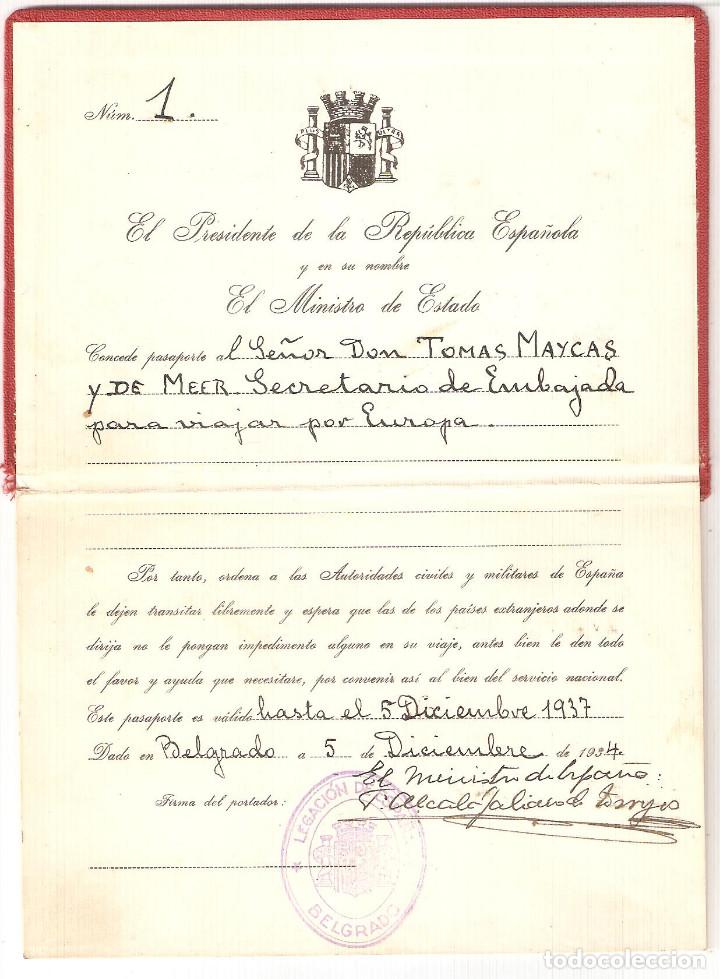 Núm. 1.
PLUS ULTRA
El Presidente de la República Española
y en su nombre
El Ministro de Estado
Concede pasaporte al Señor Don TOMAS MAYCAS
y DE MEER Secretario de Embajada
para viajar por Europa.
Por tanto, ordena a las Autoridades civiles y militares de España
le dejen transitar libremente y espera que las de los países extranjeros adonde se
dirija no le pongan impedimento alguno en su viaje, antes bien le den todo
el favor y ayuda que necesitare, por convenir así al bien del servicio nacional.
Este pasaporte es válido hasta el 5 Diciembre 1937
Dado en Belgrado a 5 de Diciembre de 1934.
El Ministro de España:
Firma del portador:
P. Alcalá Galiano
LEGACIÓN DE
BELGRADO
todocoleccion
todocoleccion.net